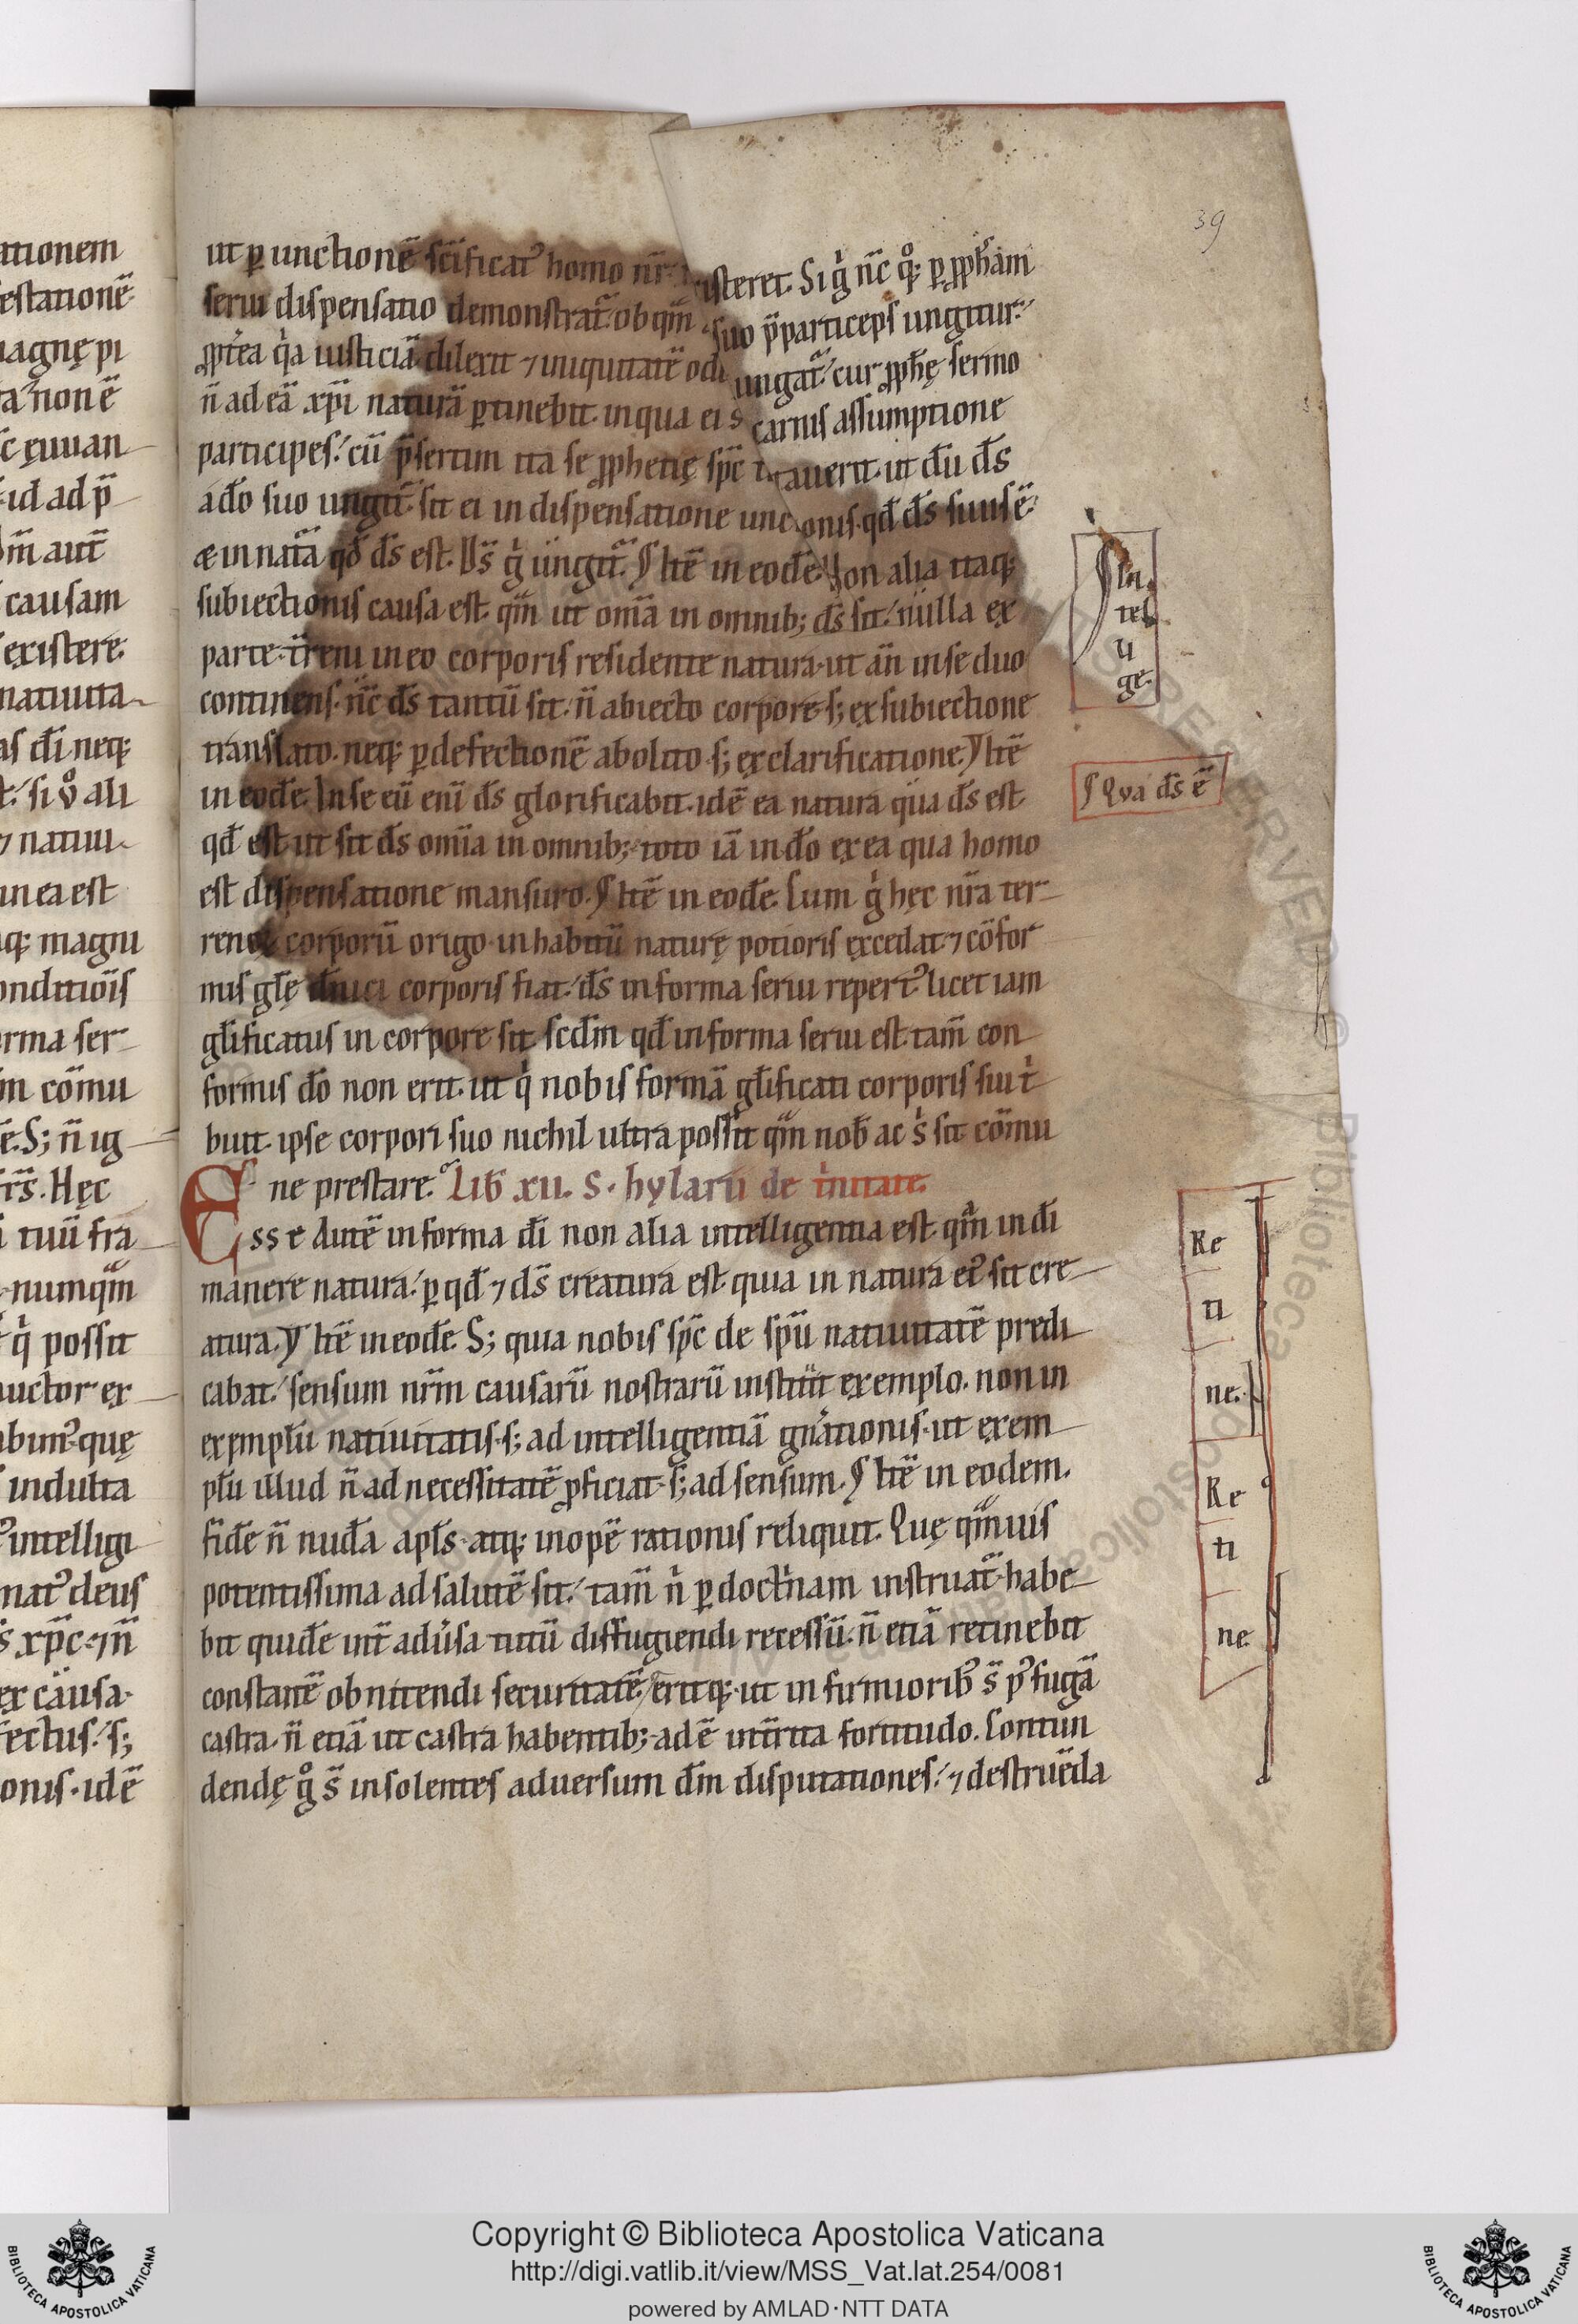 39
ut ꝑ unctionē sc̄ificaꝉ homo nr̄ isteret. Si g̊ nc̄ qͦꝫ ꝑ ꝓph̄am
serui dispensatio demonstrat̄ ob qm̄ suo p̄particeps ungitur.
ꝓpt̄ea qͥa iusticiā dilexit ⁊ iniquitatē odi ungat̄ cur ꝓph̄ę sermo
n̄ ad eā xp̄i naturā ꝑtinebit. in qua ei s carnis assumptione
participes. cū p̄sertim ita se ꝓphetię sp̄c tauerit. ut d̄m d̄s
a d̄o suo ungit̄. sit ei in dispensatione unc onis. qd̄ d̄s suus ē.
æ in nat̄a qd̄ d̄s est. Ds̄ g̊ ungit̄. ꝩ Itē in eod̄e. Non alia itaqꝫ
subiectionis causa est. qm̄ ut om̄a in omnibꝫ d̄s sit. nulla ex
parte t̄reni in eo corporis residente natura. ut añ in se duo
continens. nc̄ d̄s tantū sit. n̄ abiecto corpore. sꝫ ex subiectione
translato. neqꝫ ꝑ defectionē abolito. sꝫ ex clarificatione. ꝩ Itē
in eod̄e. In se eū enī d̄s glorificabit. idē ea natura qua d̄s est
qd̄ est ut sit d̄s omīa in omnibꝫ. toto iā in d̄o ex ea qua homo
est dispensatione mansuro. ꝩ Itē in eod̄e. Cum g̊ hęc nr̄a ter-
renoꝝ corporū origo. in habitū naturę potioris excedat. ⁊ cōfor
mis gl̄ę d̄nici corporis fiat. d̄s in forma serui reperꝉ licet iam
gl̄ificatus in corpore sit scd̄m qd̄ in forma serui est. tam̄ con
formis d̄o non erit. ut qͥ nobis formā gl̄ificati corporis sui tͥ
buit. ipse corpori suo nichil ultra possit qm̄ nob̄ ac sͥ sit cōmu
ne prestare. Lib̄ xii. S. hylarii de tͥnitate.
Esse autē in forma d̄i non alia intelligentia est. qm̄ in d̄i
manere natura. ꝑ qd̄ ⁊ d̄s creatura est quia in natura eꝰ sit cre-
atura. ꝩ Itē in eod̄e. Sꝫ quia nobis sp̄c de sp̄u natiuitatē predi
cabat. sensum nr̄m causarū nostrarū instituit exemplo. non in
exempl̄u natiuitatis. sꝫ ad intelligentiā gn̄ationis. ut exem
pl̄u illud n̄ ad necessitatē ꝓficiat. sꝫ ad sensum. ꝩ Itē in eodem.
fid̄e n̄ nud̄a apl̄s. atqꝫ inopē rationis reliquit. Quę qm̄uis
potentissima ad salutē sit. tam̄ nͥ ꝑ doctͥnam instruat̄. habe-
bit quid̄e int̄ aduͥsa tutū diffugiendi recessū. n̄ etiā retinebit
constantē obnitendi securitatē. eritqꝫ ut in firmiorib̄ s̄ pꝰ fugā
castra. n̄ etiā ut castra habentibꝫ. ad ē int̄rita fortitudo. Contun
dendę gͦ s̄ insolentes aduersum d̄m disputationes. ⁊ destruēda
In
tel
li
ge.
ꝩ Qua d̄s ē
Re
ti
ne.
Re
ti
ne.
Copyright © Biblioteca Apostolica Vaticana
http://digi.vatlib.it/view/MSS_Vat.lat.254/0081
powered by AMLAD·NTT DATA
BIBLIOTECA APOSTOLICA VATICANA
BIBLIOTECA APOSTOLICA VATICANA